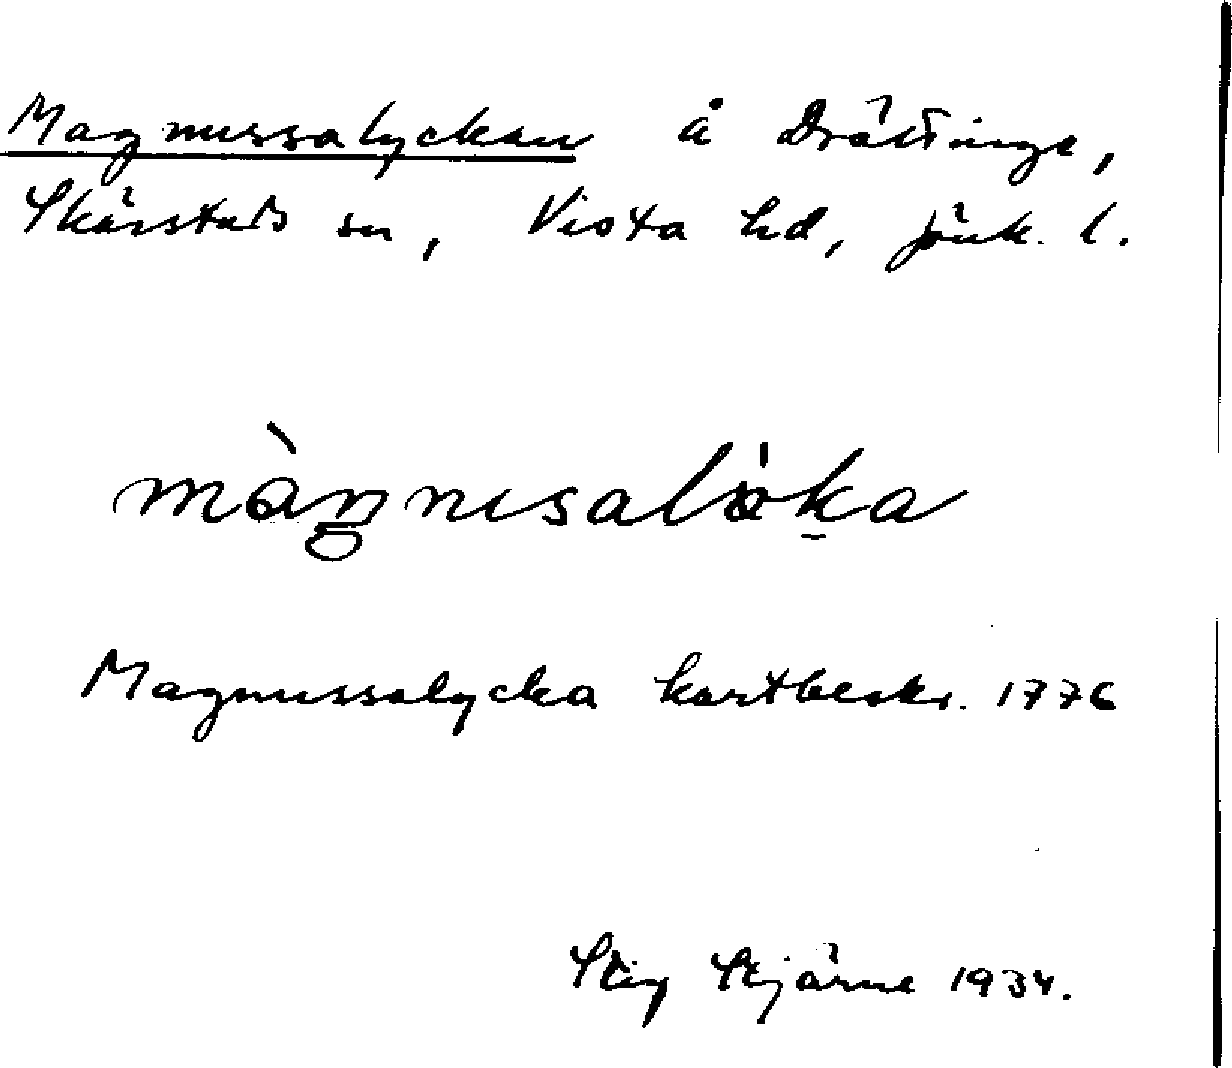 Magnussalyckan å Drättinge,
Skärstads sn, Vista hd, Jönk. l.
màŋnɪsalöka
Magnussalycka kartbeskr. 1776
Stig Stjärne 1934.